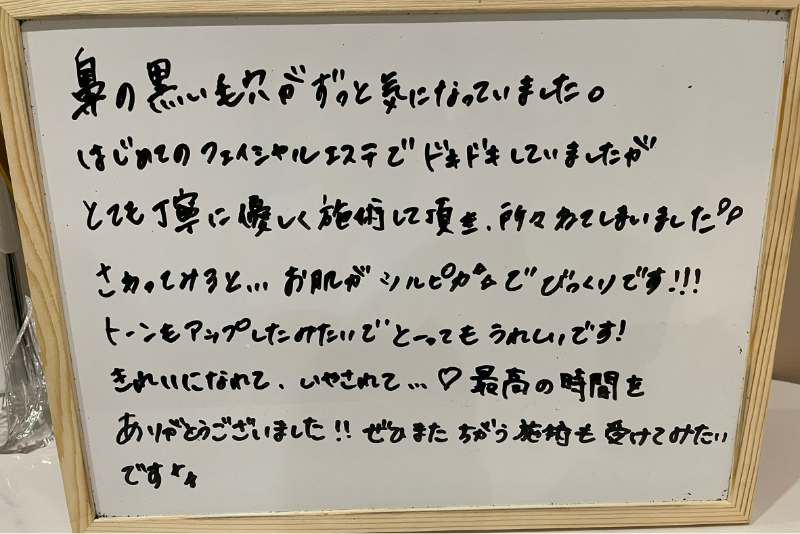 鼻の黒い毛穴がずっと気になっていました。
はじめてのフェイシャルエステでドキドキしていましたが
とても丁寧に優しく施術して頂き、所々ねてしまいました
さわってみると... お肌がツルピカでびっくりです!!!
トーンもアップしたみたいでとってもうれしいです!
きれいになれて、いやされて...♡最高の時間を
ありがとうございました!! ぜひまたちがう施術も受けてみたい
です